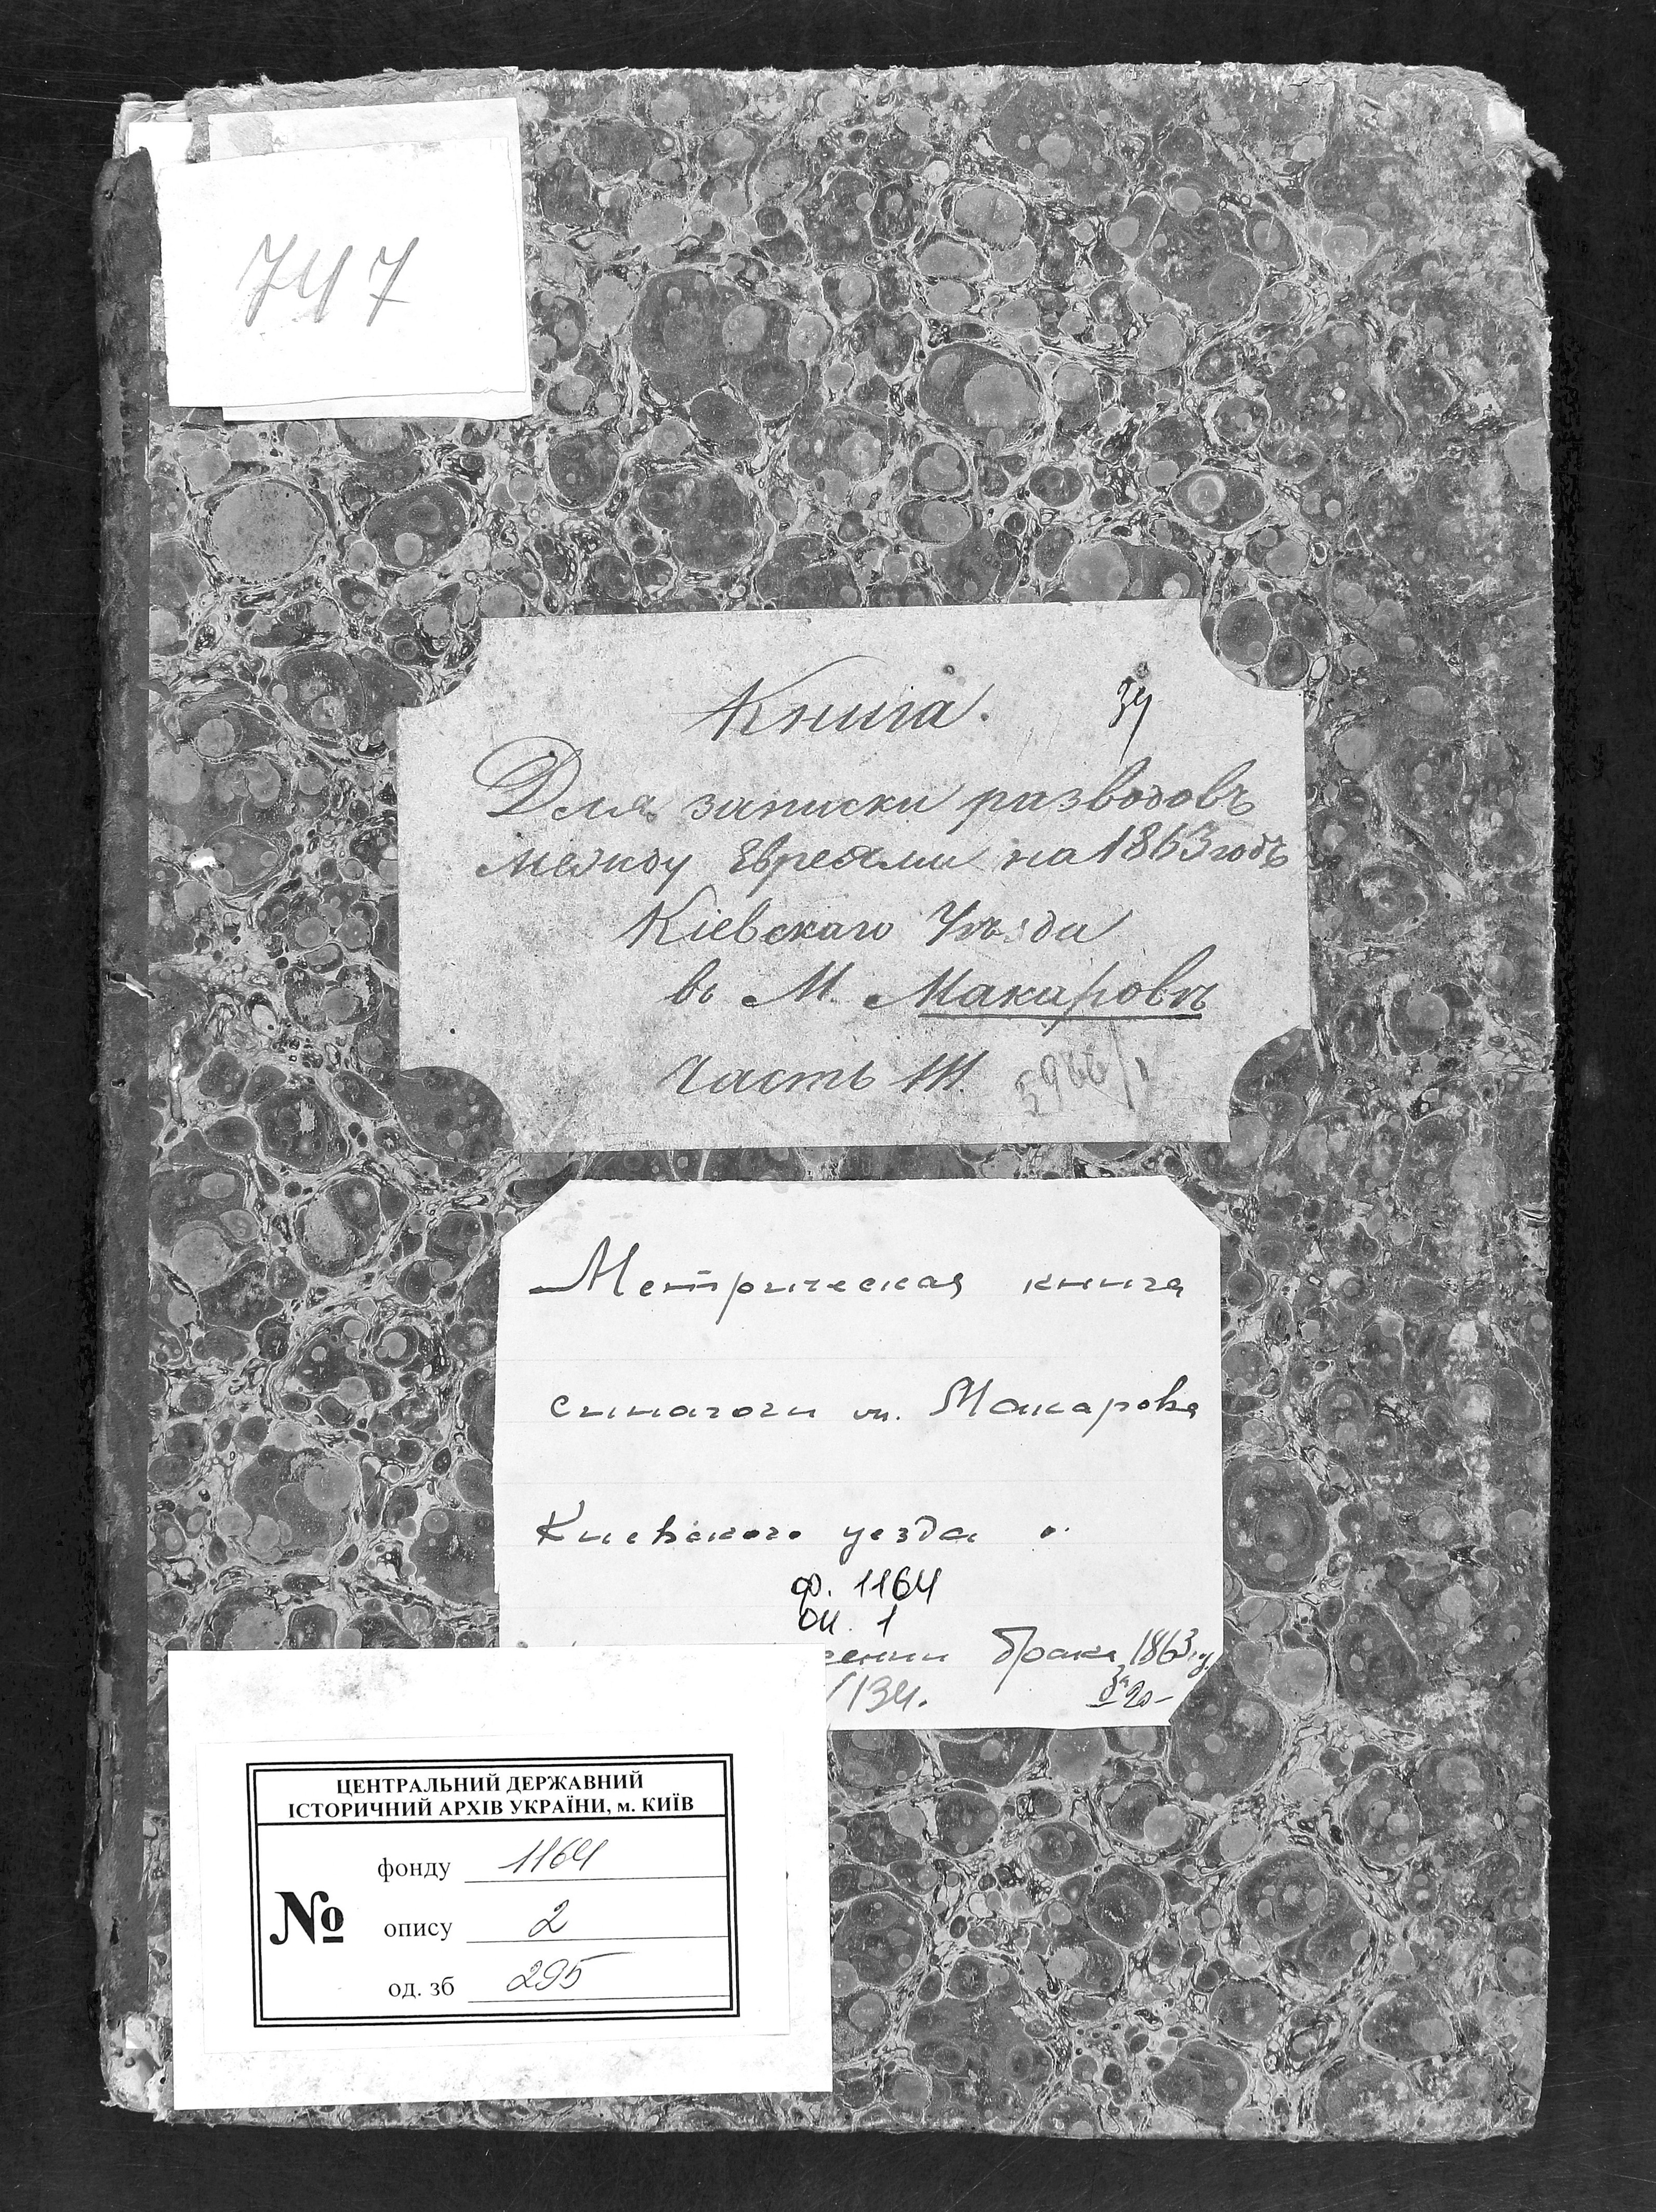 747
Книга. 34
Для записки разводовъ
между Евреями на 1863 годъ
Кіевскаго Уѣзда
въ М. Макаровѣ
Часть III.
Метрическая книга
синагоги м. Макарова
Киевского уезда о
ф. 1164
оп. 1
брака 1863 г.
134.
ЦЕНТРАЛЬНИЙ ДЕРЖАВНИЙ
ІСТОРИЧНИЙ АРХІВ УКРАЇНИ, м. КИЇВ
фонду 1164
№ опису 2
од. зб 295